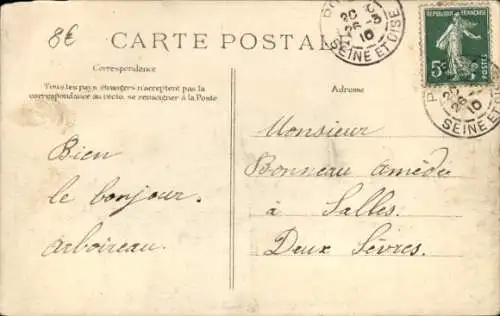 8€
CARTE POSTALE
Correspondance
Tous les pays étrangers n'acceptent pas la
correspondance au recto, se renseigner à la Poste
Bien
le bonjour.
Arboireau.
Adresse
Monsieur
Bonneau Amédée
à Salles.
Deux Sèvres.
20
26
10
SEINE ET OISE
REPUBLIQUE FRANÇAISE
5c
SEINE ET OISE